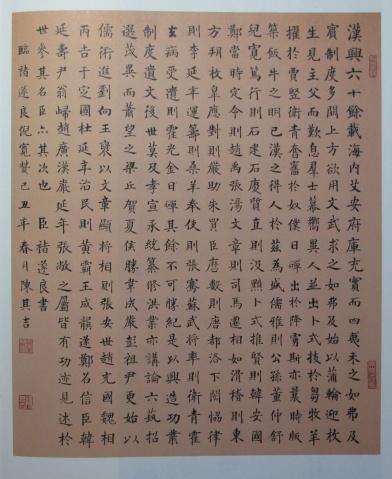 漢興六十餘載海内艾安府庫充實而四夷未之如弗及
賓制度多闕上方欲用文武求之如弗及始以蒲輪迎枚
生見主父而歎息羣士慕嚮異人並出卜式拔於芻牧羊
擢於賈豎衛青奮於奴僕日磾出於降虜斯亦曩時版
築飯牛之明已漢之得人於兹為盛儒雅則公孫董仲舒
兒寬篤行則石建石慶質直則汲黯卜式推賢則韓安國
鄭當時定令則趙禹張湯文章則司馬遷相如滑稽則東
方朔枚皋應對則嚴助朱買臣曆數則唐都洛下閎協律
則李延年運籌則桑羊奉使則張騫蘇武將率則衛青霍
去病受遺則霍光金日磾其餘不可勝紀是以興造功業
制度遺文後世莫及孝宣承統纂修洪業亦講論六藝招
選茂異而蕭望之梁丘賀夏侯勝韋成嚴彭祖尹更始以
儒術進劉向王褒以文章顯將相則張安世趙充國魏相
丙吉于定國杜延年治民則黃霸王成龔遂鄭名信臣韓
延壽尹翁歸趙廣漢嚴延年張敞之屬皆有功迹見述於
世參其名臣亦其次也 臣褚遂良書
臨褚遂良倪寬贊己丑年春月陳其吉